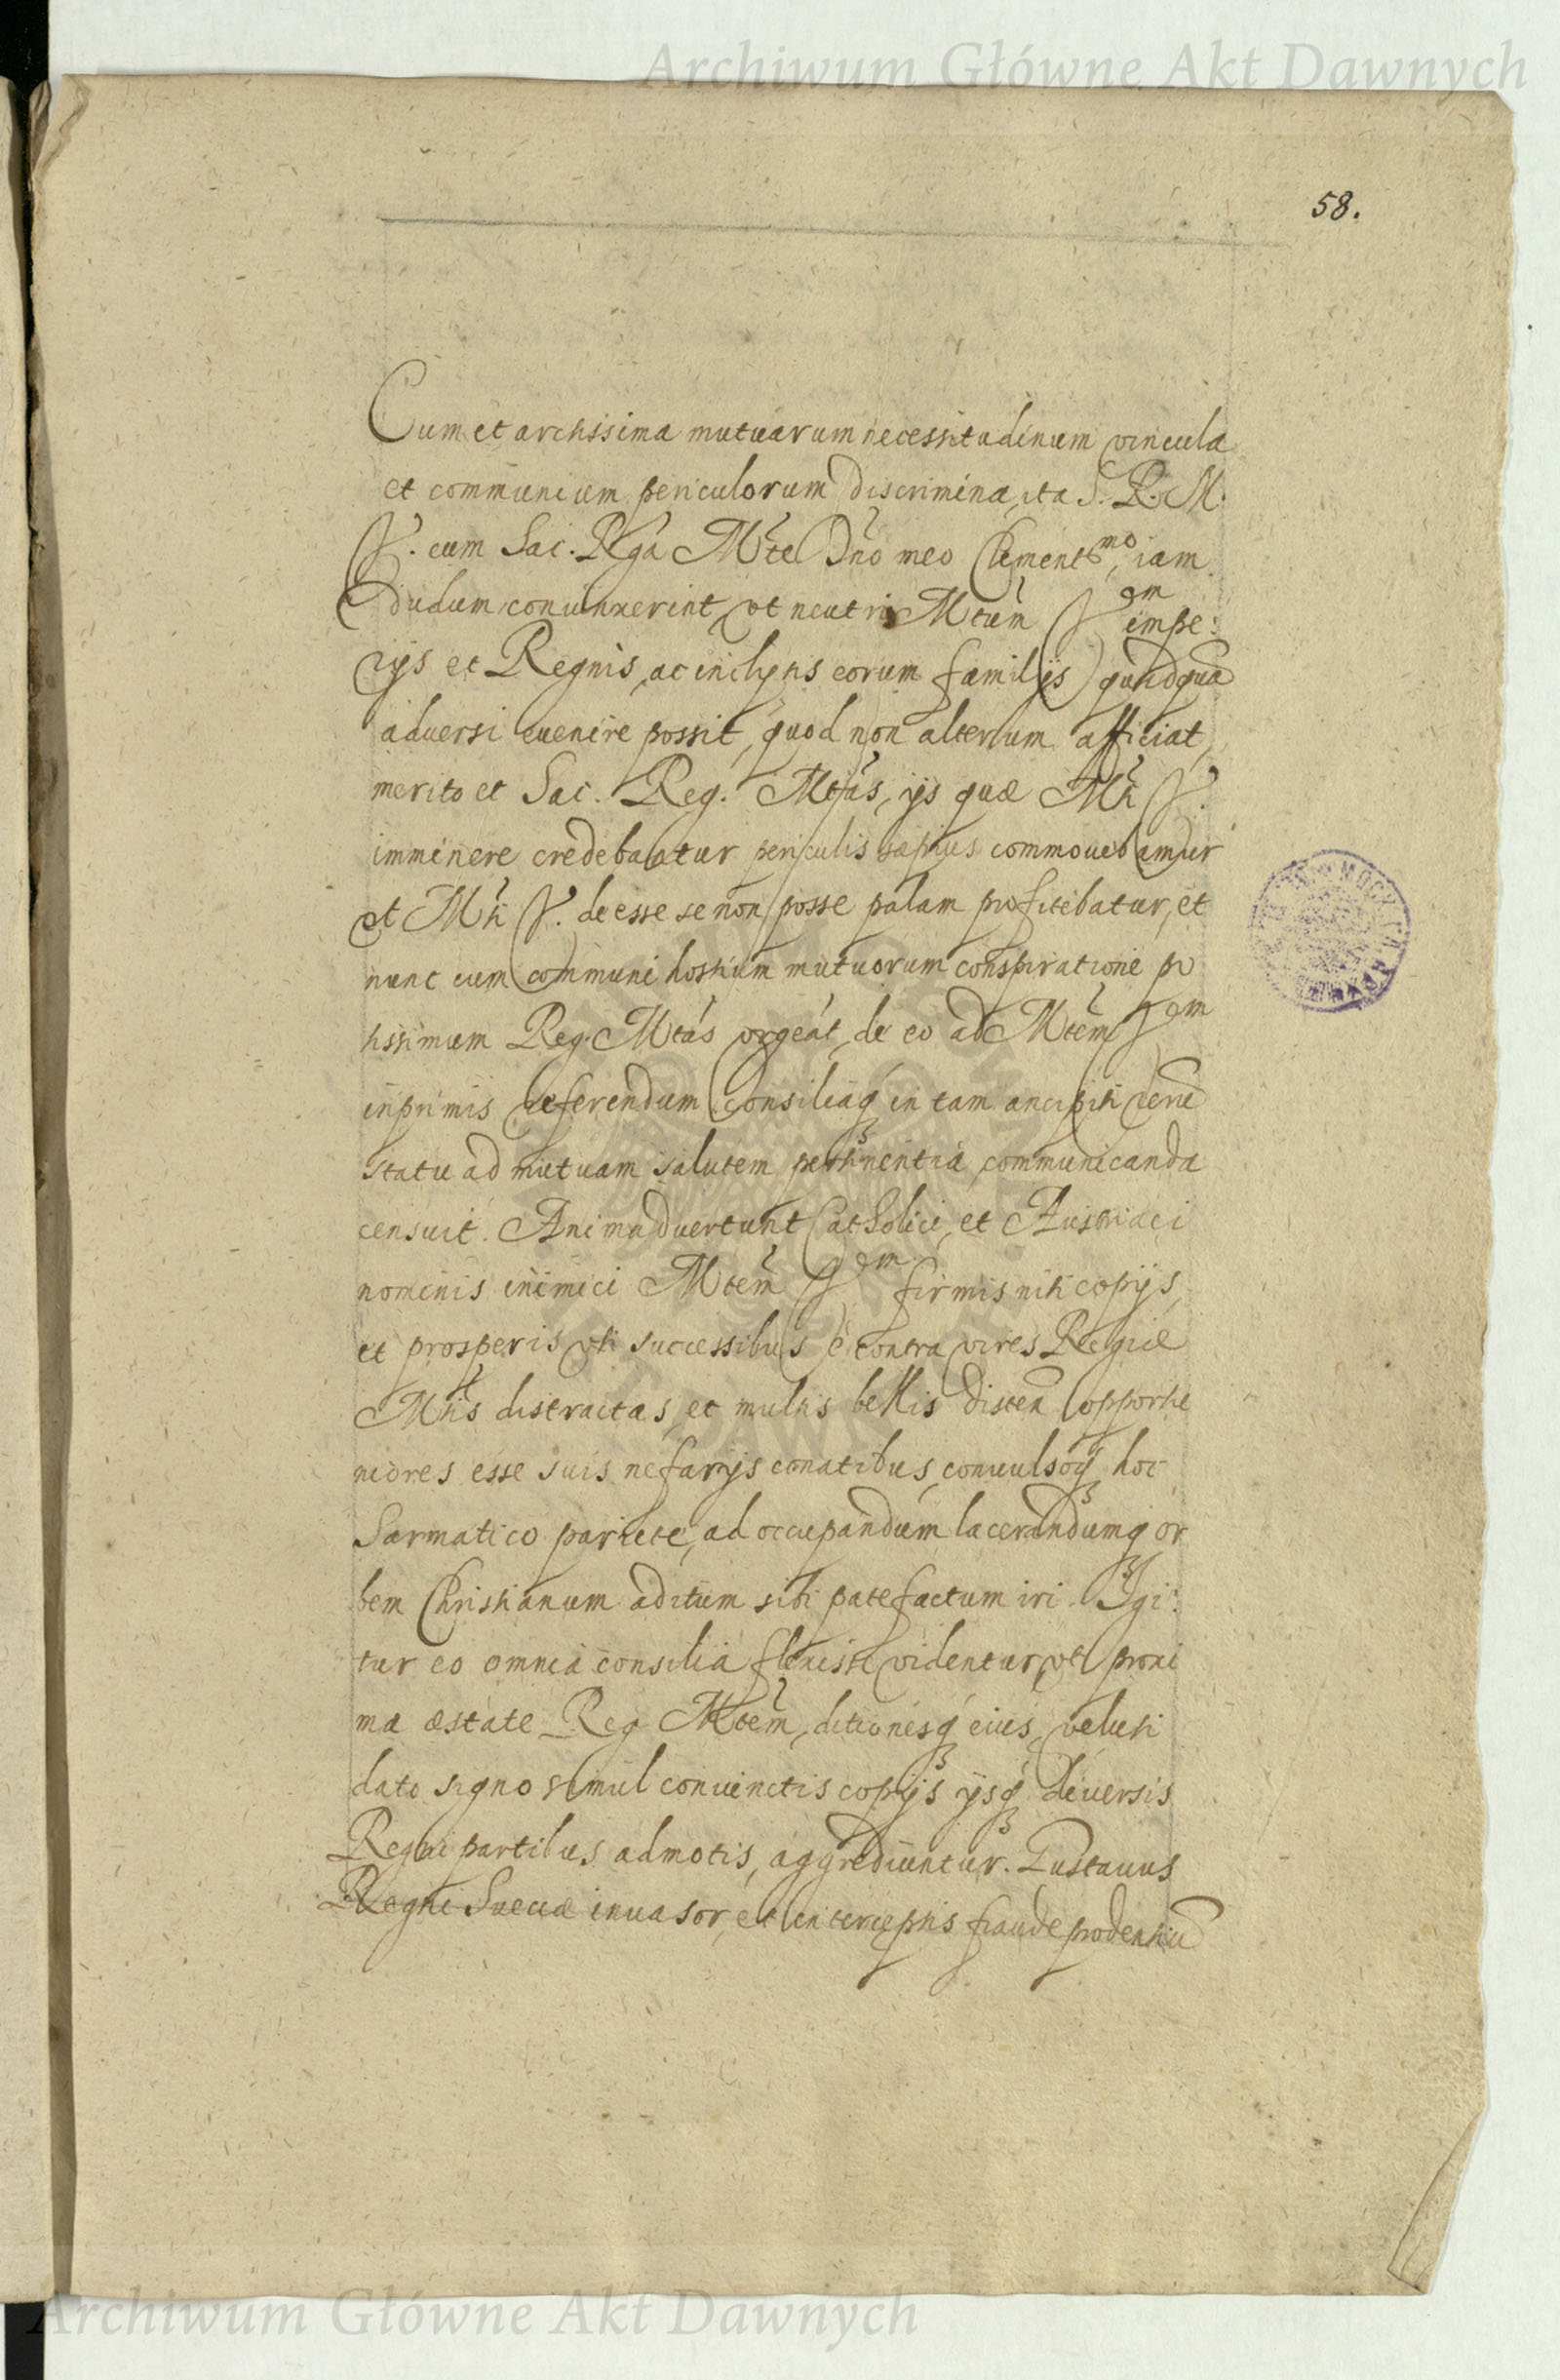 Archiwum Główne Akt Dawnych
58.
Cum et arctissima mutuarum necessitudinum vincula
et communium periculorum discrimina, ita S. R. M.
V. cum Sac. Rga Mte Dno meo Clementmo, iam
dudum convinxerint, vt neutri Mtum V em impe:
rijs et Regnis, ac inclytis eorum familijs quidqua
adversi evenire possit, quod non alterum afficiat,
merito et Sac. Reg. Mtas, ijs quæ Mti V.
imminere credebantur periculis sæpius commouebatur
et Mti V. deesse se non posse palam profitebatur, et
nunc cum communi hostium mutuorum conspiratione po
tissimum Reg. Mtas vrgeat, de eo ad Mtem V em
inprimis referendum consiliaq in tam ancipiti rerū
statu ad mutuam salutem pertinentia communicanda
censuit. Animaduertunt Catholici, et Austriaci
nominis inimici Mtem V em firmis niti copijs,
et prosperis vti successibus, e contra vires Regiæ
Mtis distractas, et multis bellis disten opportu
niores esse suis nefarijs conatibus, conuulsoq hoc
Sarmatico pariete, ad occupandum lacerandumq or
bem Christianum aditum sibi patefactum iri. Igi:
tur eo omnia consilia flexisse videntur, vti proxi
ma æstate Reg Mtem, ditionesq eius, veluti
dato signo simul conuinctis copijs ijsq diversis
Regni partibus admotis, aggrediuntur. Gustauus
Regni Sueciæ inuasor, et interceptis fraude prodentiū
Archiwum Główne Akt Dawnych